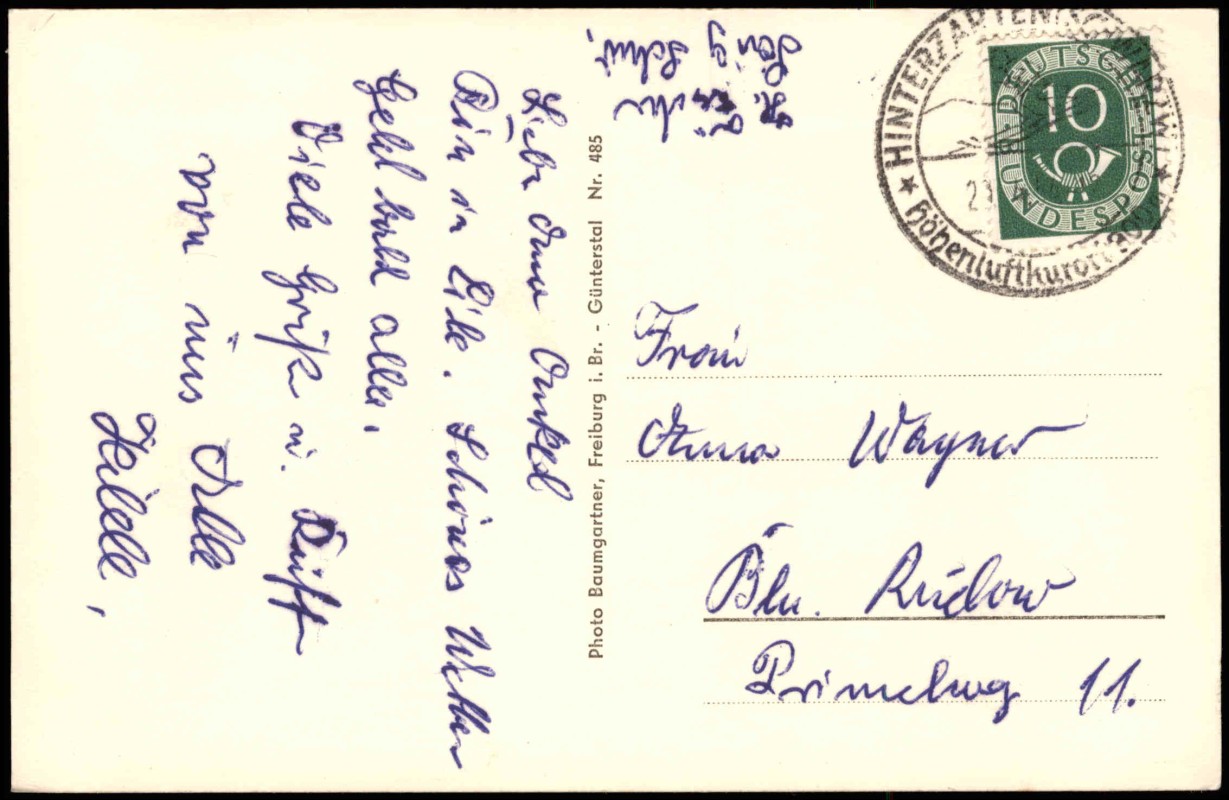 Liebe Oma Onkel
Bin in Eile. Schönes Wetter
Geht bald alle,
Viele Grüße u.
von uns Alle
Photo Baumgartner, Freiburg i. Br. - Günterstal Nr. 485
HINTERZARTEN (SCHWARZW.)
Höhenluftkurort
DEUTSCHE BUNDESPOST
10
Frau
Anna Wagner
Bln. Rudow
Primelweg 11.